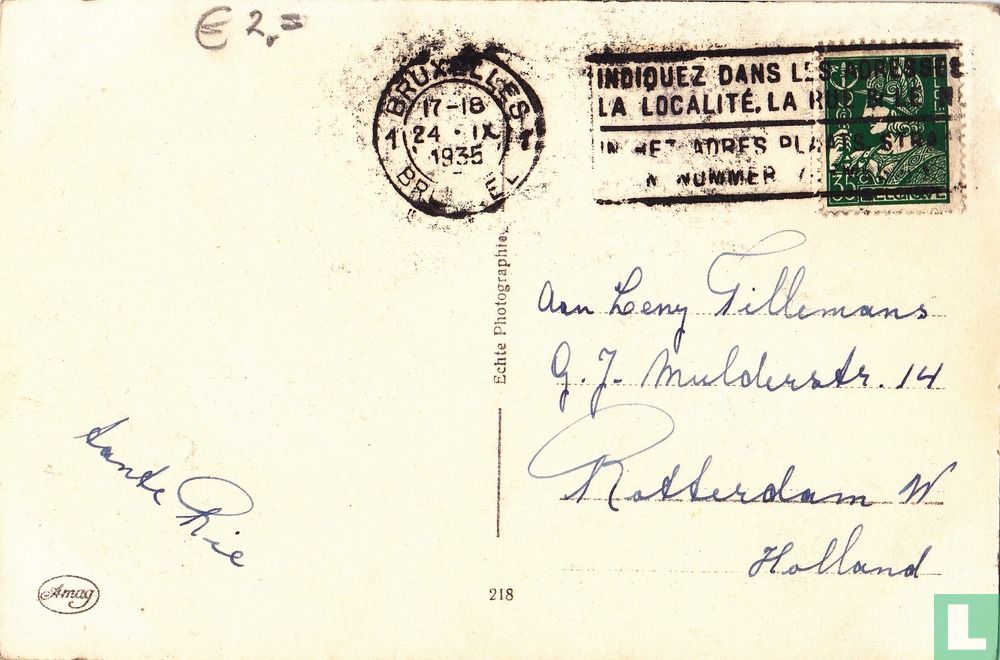 € 2,=
BRUXELLES
17-18
1 24 · IX 1
1935
BRUSSEL
INDIQUEZ DANS LES ADRESSES
LA LOCALITÉ, LA RUE & LE N
IN HET ADRES PLAATS, STRA
NUMMER
35 BELGIQUE
Echte Photographie
Aan Leny Tillemans
G. J. Mulderstr. 14
Rotterdam W
Holland
tante Rie
Amag
218
L